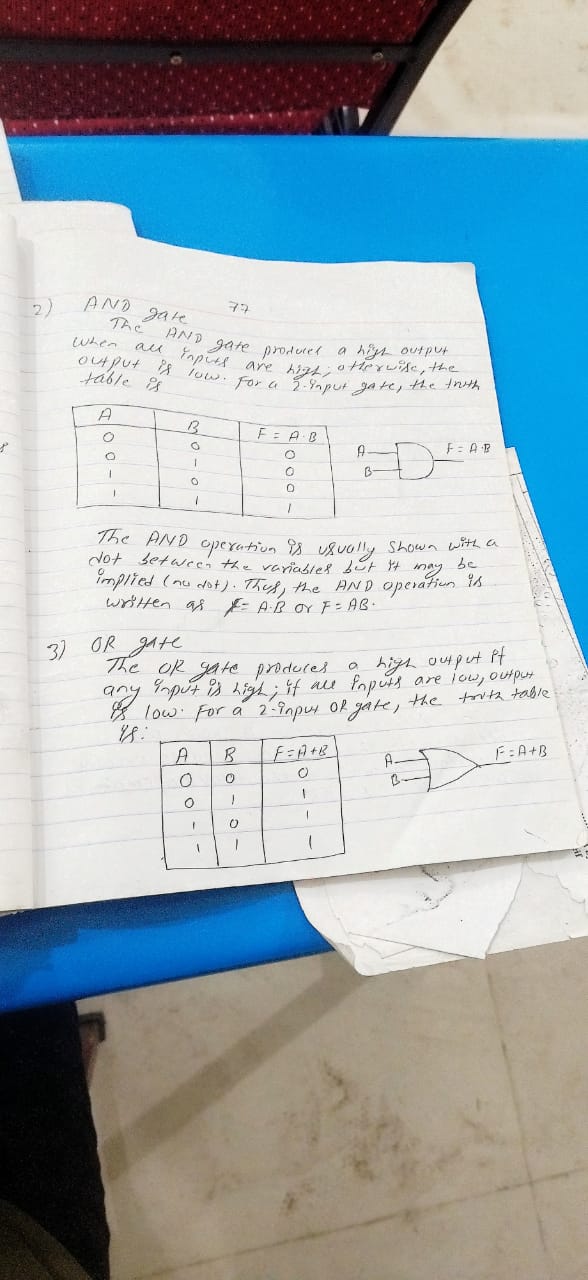 77
2) AND gate
The AND gate produces a high output
when all inputs are high; otherwise, the
output is low. For a 2-input gate, the truth
table is
A B F = A·B
0 0 0
0 1 0
1 0 0
1 1 1
A
B
F = A·B
The AND operation is usually shown with a
dot between the variables but it may be
implied (no dot). Thus, the AND operation is
written as F = A.B or F = AB.
3) OR gate
The OR gate produces a high output if
any input is high; if all inputs are low, output
is low. For a 2-input OR gate, the truth table
is:
A B F=A+B
0 0 0
0 1 1
1 0 1
1 1 1
A
B
F=A+B